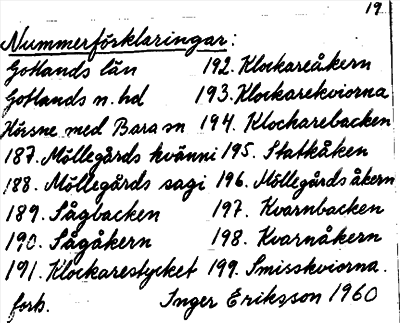 19.
Nummerförklaringar:
Gotlands län
Gotlands n. hd
Hörsne med Bara sn
187. Möllegårds kvänni
188. Möllegårds sagi
189. Sågbacken
190. Sågåkern
191. Klockarestycket
192. Klockareåkern
193. Klockarekviorna
194. Klockarebacken
195. Statkåken
196. Möllegårdsåkern
197. Kvarnbacken
198. Kvarnåkern
199. Smisskviorna.
forts.
Inger Eriksson 1960